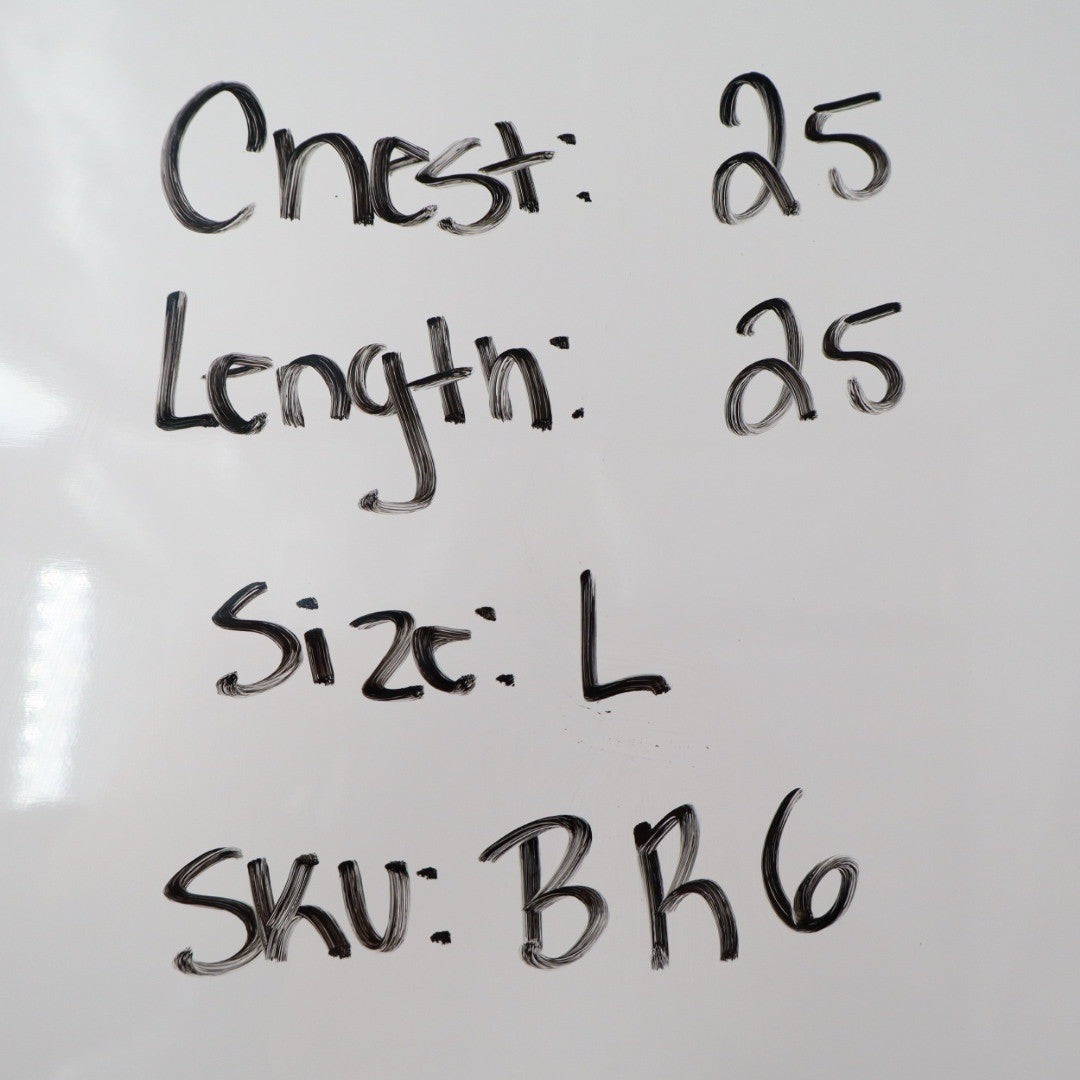 Chest: 25
Length: 25
Size: L
SKU: BR6